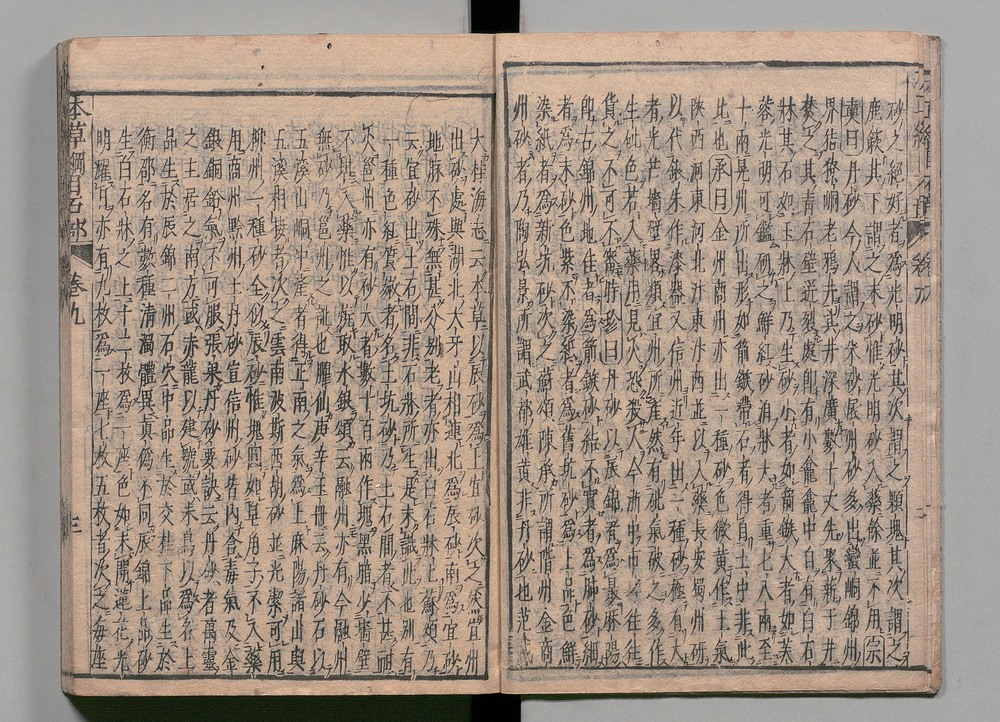 砂之絕好者為光明砂其次謂之顆塊其次謂之
鹿簌其下謂之末砂惟光明砂入藥餘並不用宗
奭曰丹砂今人謂之朱砂辰州砂多出蠻峒錦州
界狤獠峒老鴉井其井深廣數十丈先聚薪于井
焚之其青石壁迸裂處即有小龕龕中自有白石
牀其石如玉牀上乃生砂小者如箭鏃大者如芙
蓉光明可鑑研之鮮紅砂洎牀大者重七八兩至
十兩晃州所出形如箭鏃帶石者得自土中非此
比也承曰金州商州亦出一種砂色微黃作土氣
陝西河東河北汴東汴西並以入藥長安蜀州研
以代銀朱作漆器又信州近年出一種砂極有大
者光芒墻壁畧類宜州所產然有砒氣破之多作
生砒色若入藥用見火恐殺人今浙中市肆往往
貨之不可不審時珍曰丹砂以辰錦者為最麻陽
即古錦州地佳者為箭鏃砂結不實者為肺砂細
者為末砂色紫不染紙者為舊坑砂為上品色鮮
染紙者為新坑砂次之蘇頌陳承所謂階州金商
州砂者乃陶弘景所謂武都雄黃非丹砂也范成
大桂海志云本草以辰砂為上宜砂次之然宜州
出砂處與湖北大牙山相連北為辰砂南為宜砂
地脉不殊無甚分別老者亦出白石牀上蘇頌乃
云宜砂出土石間非石牀所生是未識此也別有
一種色紅質嫩者名土坑砂乃土石間者不甚耐
火邕州亦有砂大者數十百兩作塊黑暗少牆壁
不堪入藥惟以燒取水銀頌云融州亦有今融州
無砂乃邕州之訛也臞仙庚辛玉冊云丹砂石以
五溪山峒中產者得正南之氣為上麻陽諸山與
五溪相接者次之雲南波斯西胡砂並光潔可用
柳州一種砂全似辰砂惟塊圓如皂角子不入藥
用商州黔州土丹砂宣信州砂皆內含毒氣及金
銀銅鉛氣不可服張果丹砂要訣云丹砂者萬靈
之主居之南方或赤龍以建號或朱鳥以為名上
品生於辰錦二州石穴中品生於交桂下品生於
衡邵名有數種清濁體異真偽不同辰錦上品砂
生白石牀之上十二枚為一座色如未開蓮花光
明耀日亦有九枚為一座七枚五枚者次之每座
本草綱目石部 卷九 三